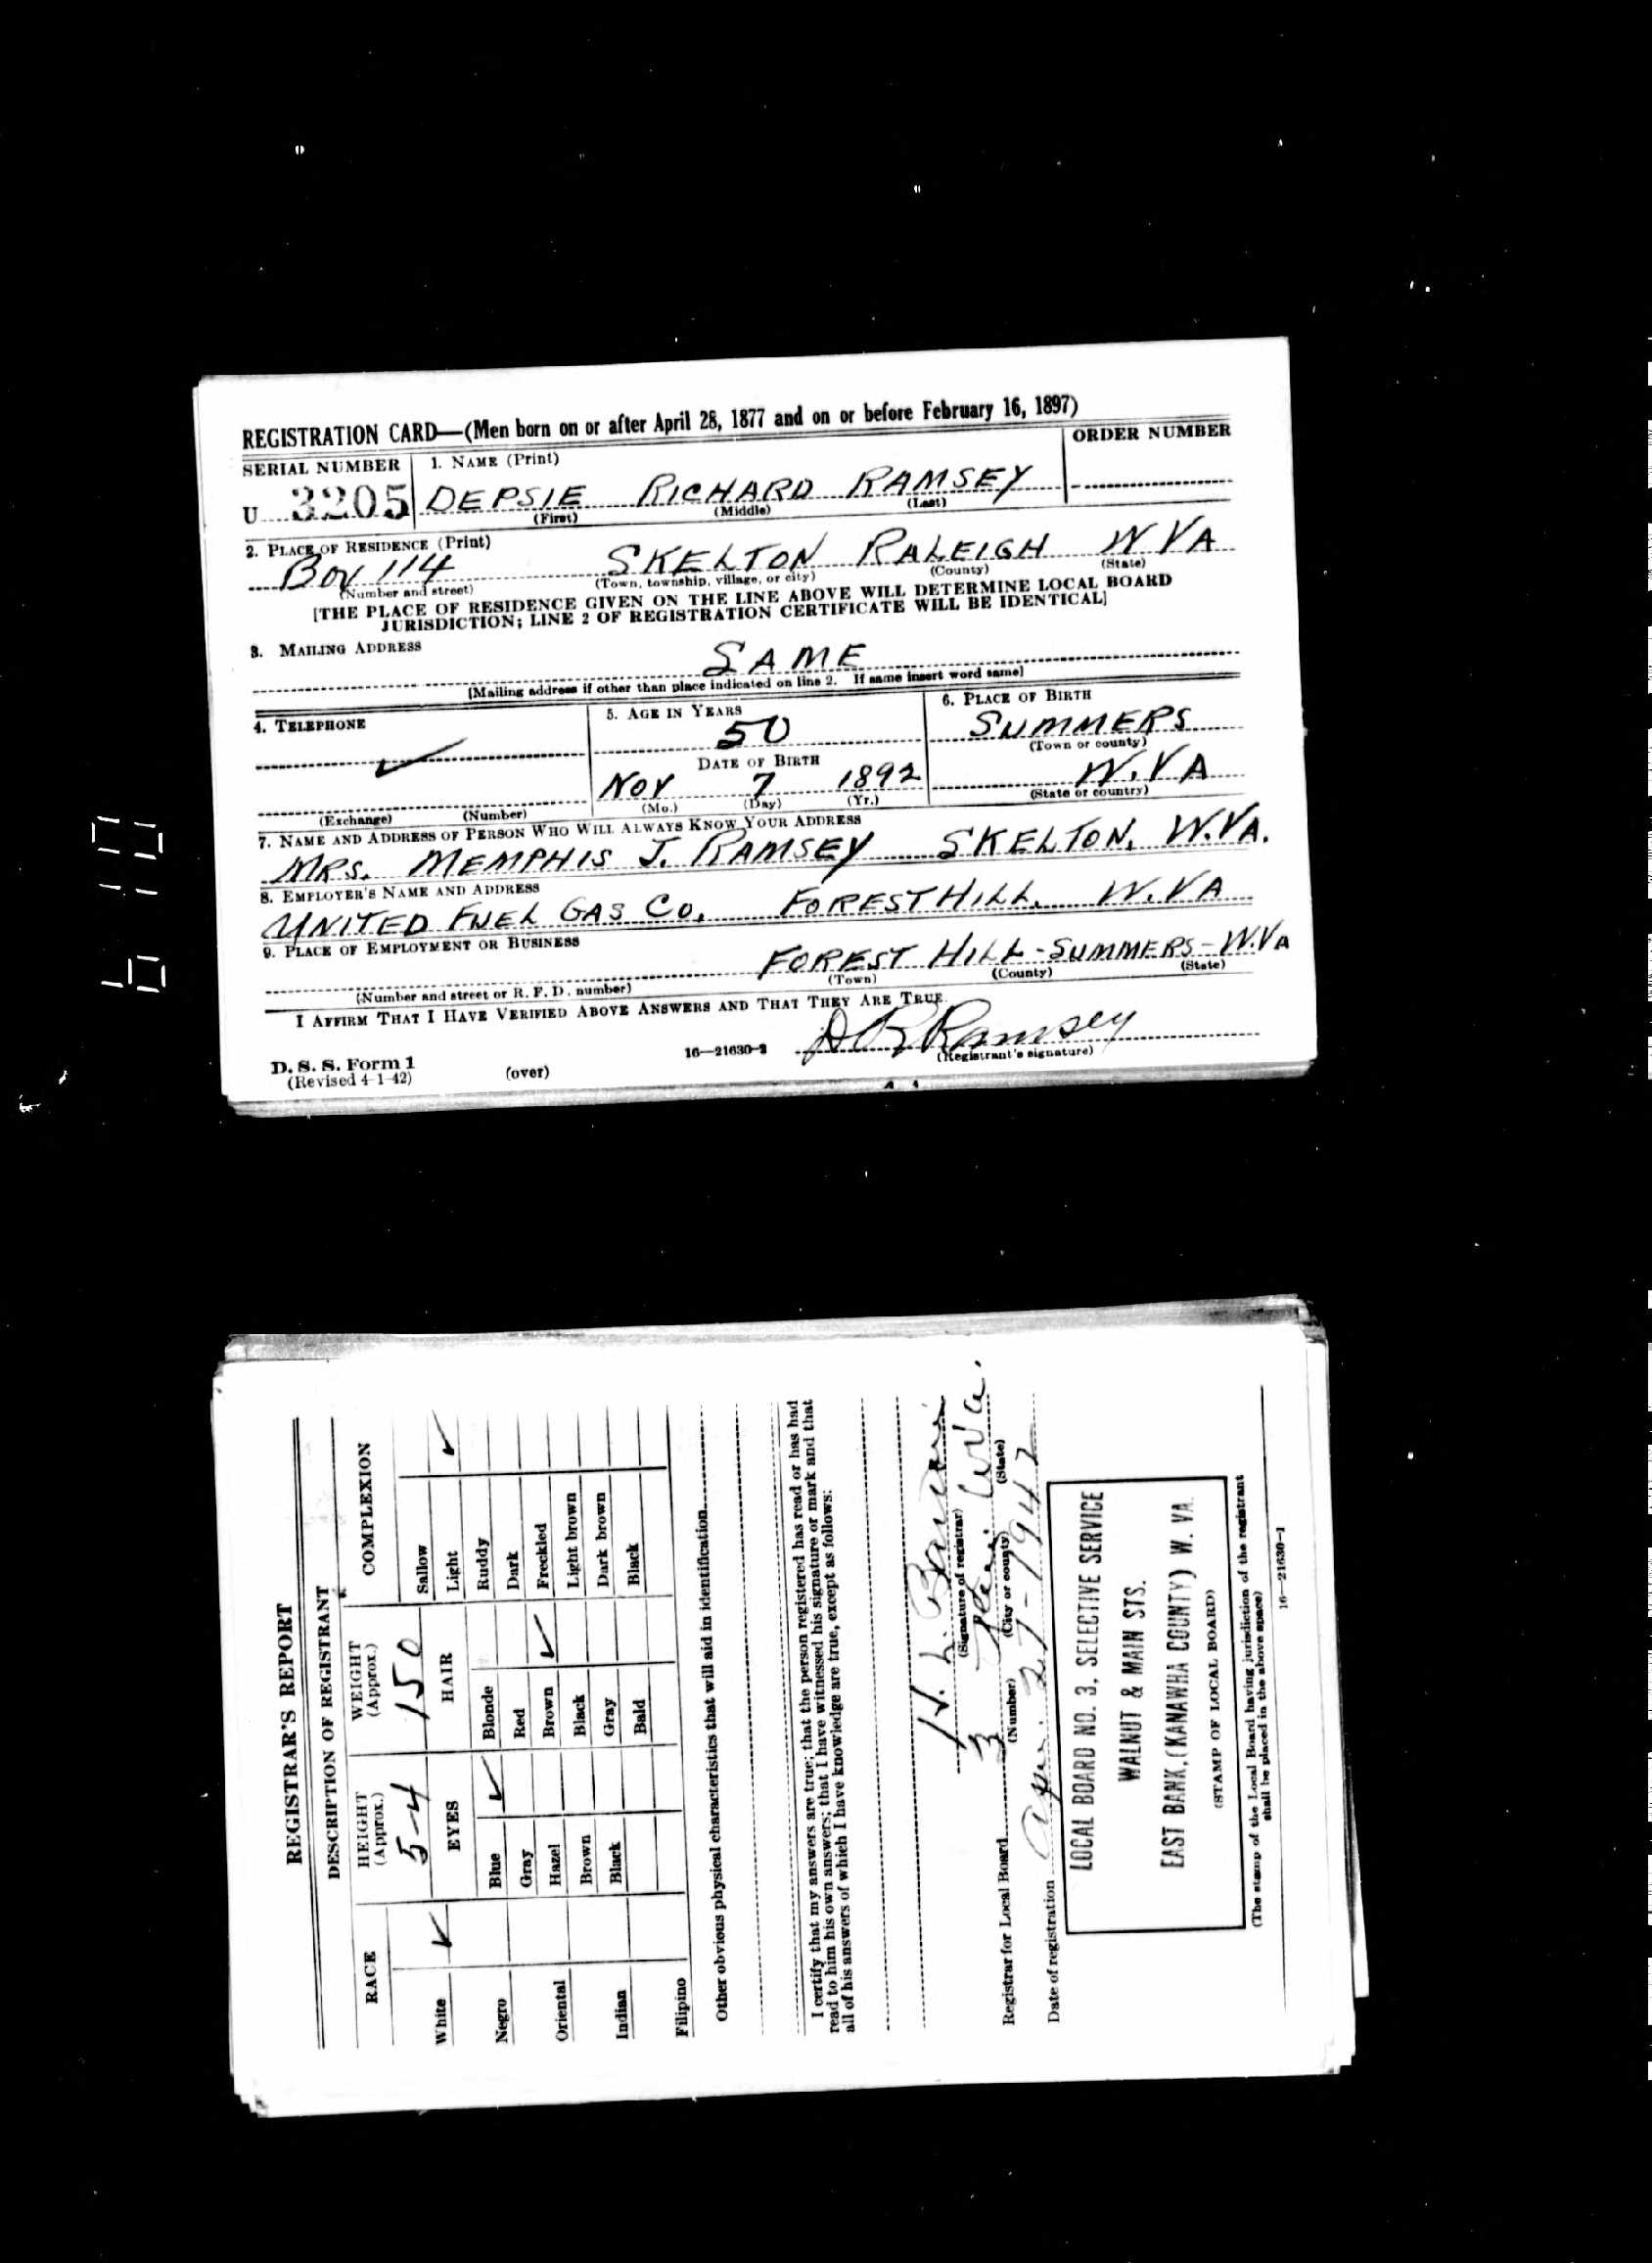 REGISTRATION CARD—(Men born on or after April 28, 1877 and on or before February 16, 1897)
SERIAL NUMBER 1. NAME (Print) ORDER NUMBER
U 3205 DEPSIE RICHARD RAMSEY
(First) (Middle) (Last)
2. PLACE OF RESIDENCE (Print)
Box 114 SKELTON RALEIGH W VA
(Number and street) (Town, township, village, or city) (County) (State)
[THE PLACE OF RESIDENCE GIVEN ON THE LINE ABOVE WILL DETERMINE LOCAL BOARD
JURISDICTION; LINE 2 OF REGISTRATION CERTIFICATE WILL BE IDENTICAL]
3. MAILING ADDRESS
SAME
[Mailing address if other than place indicated on line 2. If same insert word same]
4. TELEPHONE 5. AGE IN YEARS 6. PLACE OF BIRTH
50 SUMMERS
(Town or county)
DATE OF BIRTH
NOV 7 1892 W.VA
(Exchange) (Number) (Mo.) (Day) (Yr.) (State or country)
7. NAME AND ADDRESS OF PERSON WHO WILL ALWAYS KNOW YOUR ADDRESS
MRS. MEMPHIS J. RAMSEY SKELTON, W.VA.
8. EMPLOYER'S NAME AND ADDRESS
UNITED FUEL GAS CO. FOREST HILL, W.VA
9. PLACE OF EMPLOYMENT OR BUSINESS
FOREST HILL-SUMMERS-W.VA
(Number and street or R. F. D. number) (Town) (County) (State)
I AFFIRM THAT I HAVE VERIFIED ABOVE ANSWERS AND THAT THEY ARE TRUE.
D R Ramsey
D. S. S. Form 1 16—21630-2 (Registrant's signature)
(Revised 4-1-42) (over)
REGISTRAR'S REPORT
DESCRIPTION OF REGISTRANT
RACE HEIGHT (Approx.) WEIGHT (Approx.) COMPLEXION
5-4 150
White ✓ EYES HAIR Sallow
Light ✓
Negro Blue ✓ Blonde Ruddy
Gray Red Dark
Oriental Hazel Brown ✓ Freckled
Brown Black Light brown
Indian Black Gray Dark brown
Bald Black
Filipino
Other obvious physical characteristics that will aid in identification
I certify that my answers are true; that the person registered has read or has had
read to him his own answers; that I have witnessed his signature or mark and that
all of his answers of which I have knowledge are true, except as follows:
H. L.
(Signature of registrar)
Registrar for Local Board 3 W Va.
(Number) (City or county) (State)
Date of registration Apr. 27-1942
LOCAL BOARD NO. 3, SELECTIVE SERVICE
WALNUT & MAIN STS.
EAST BANK, (KANAWHA COUNTY) W. VA.
(STAMP OF LOCAL BOARD)
(The stamp of the Local Board having jurisdiction of the registrant
shall be placed in the above space)
16—21630-1